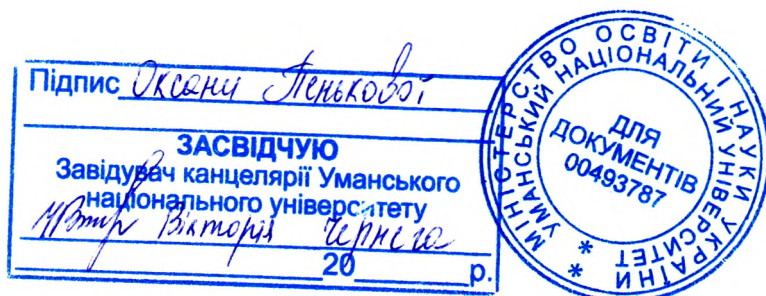 Підпис Оксани Пенькової
ЗАСВІДЧУЮ
Завідувач канцелярії Уманського
національного університету
Вікторія Чернега
20 р.
МІНІСТЕРСТВО ОСВІТИ І НАУКИ УКРАЇНИ
УМАНСЬКИЙ НАЦІОНАЛЬНИЙ УНІВЕРСИТЕТ
ДЛЯ
ДОКУМЕНТІВ
00493787